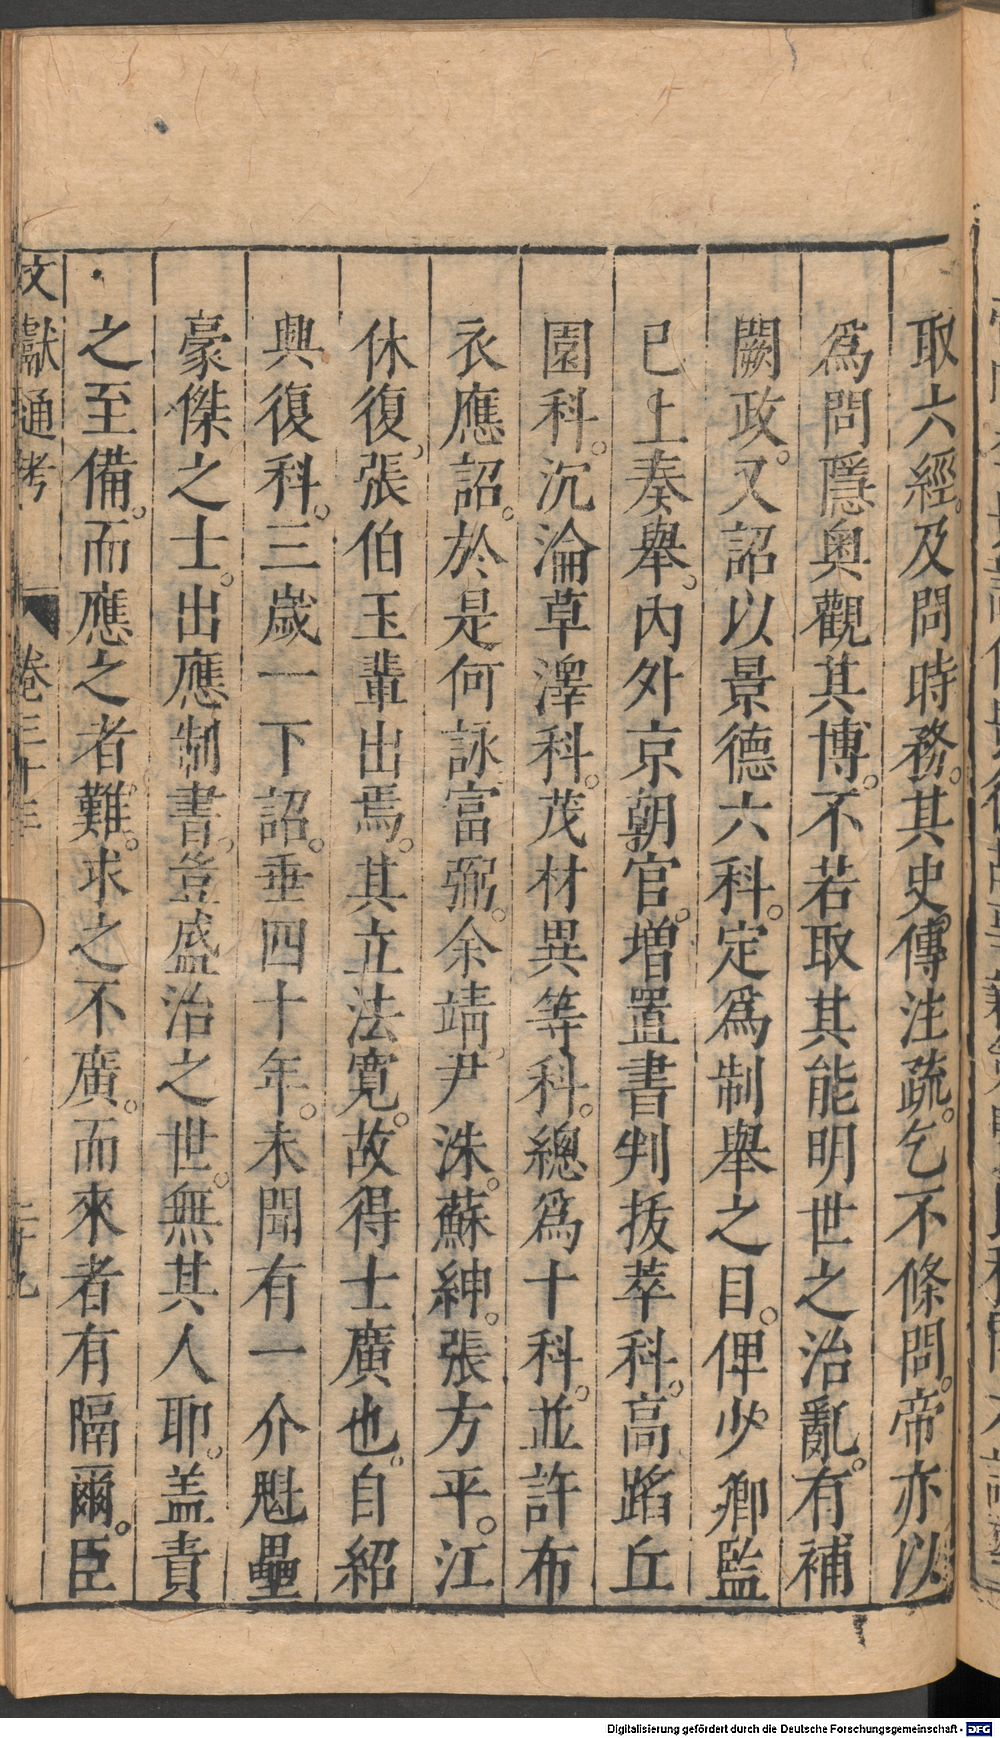 取六經。及問時務。其史傳注疏。乞不條問。帝亦以
爲問隱奥觀其博。不若取其能明世之治亂。有補
闕政。又詔以景德六科。定爲制舉之目。俾少卿監
已上奏舉。內外京朝官。增置書判拔萃科。高蹈丘
園科。沉淪草澤科。茂材異等科。總爲十科。並許布
衣應詔。於是何詠富弼。余靖尹洙。蘇紳。張方平。江
休復張伯玉輩出焉。其立法寬。故得士廣也。自紹
興復科。三歲一下詔。垂四十年。未聞有一介魁壘
豪傑之士。出應制書。豈盛治之世。無其人耶。盖責
之至備。而應之者難。求之不廣。而來者有隔爾。臣
文獻通考 卷三十三 二十九
Digitalisierung gefördert durch die Deutsche Forschungsgemeinschaft - DFG